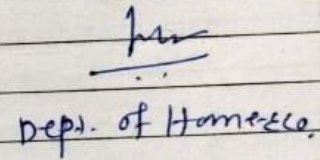 Dept. of Home-Eco.